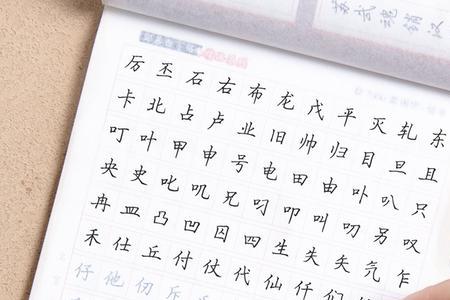 苏武魂销汉
厉丕石右布龙戊平灭轧东
卡北占卢业旧帅归目旦且
叮叶甲申号电田由卟叭只
央史叱叽兄叼叩叫叻另叹
冉皿凸凹囚四生失矢气乍
禾仕丘付仗代仙仟们
仔他仞斥